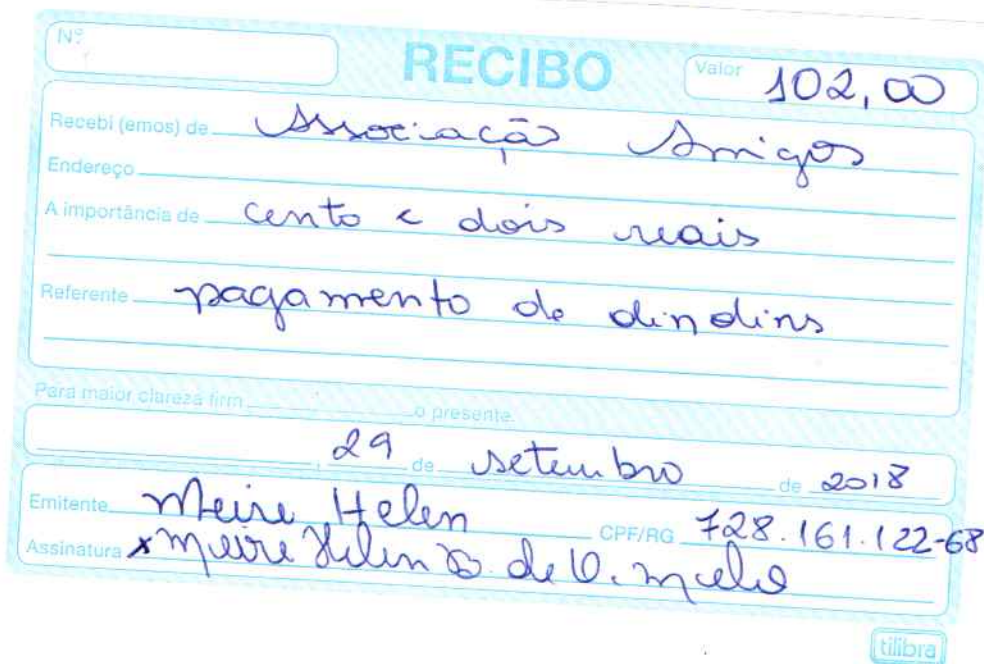 Nº
RECIBO
Valor 102,00
Recebi (emos) de Associação Amigos
Endereço
A importância de cento e dois reais
Referente pagamento de dindins
Para maior clareza firm o presente.
, 29 de setembro de 2018
Emitente Meire Helen CPF/RG 728.161.122-68
Assinatura x Meire Helen B. de O. Melo
tilibra